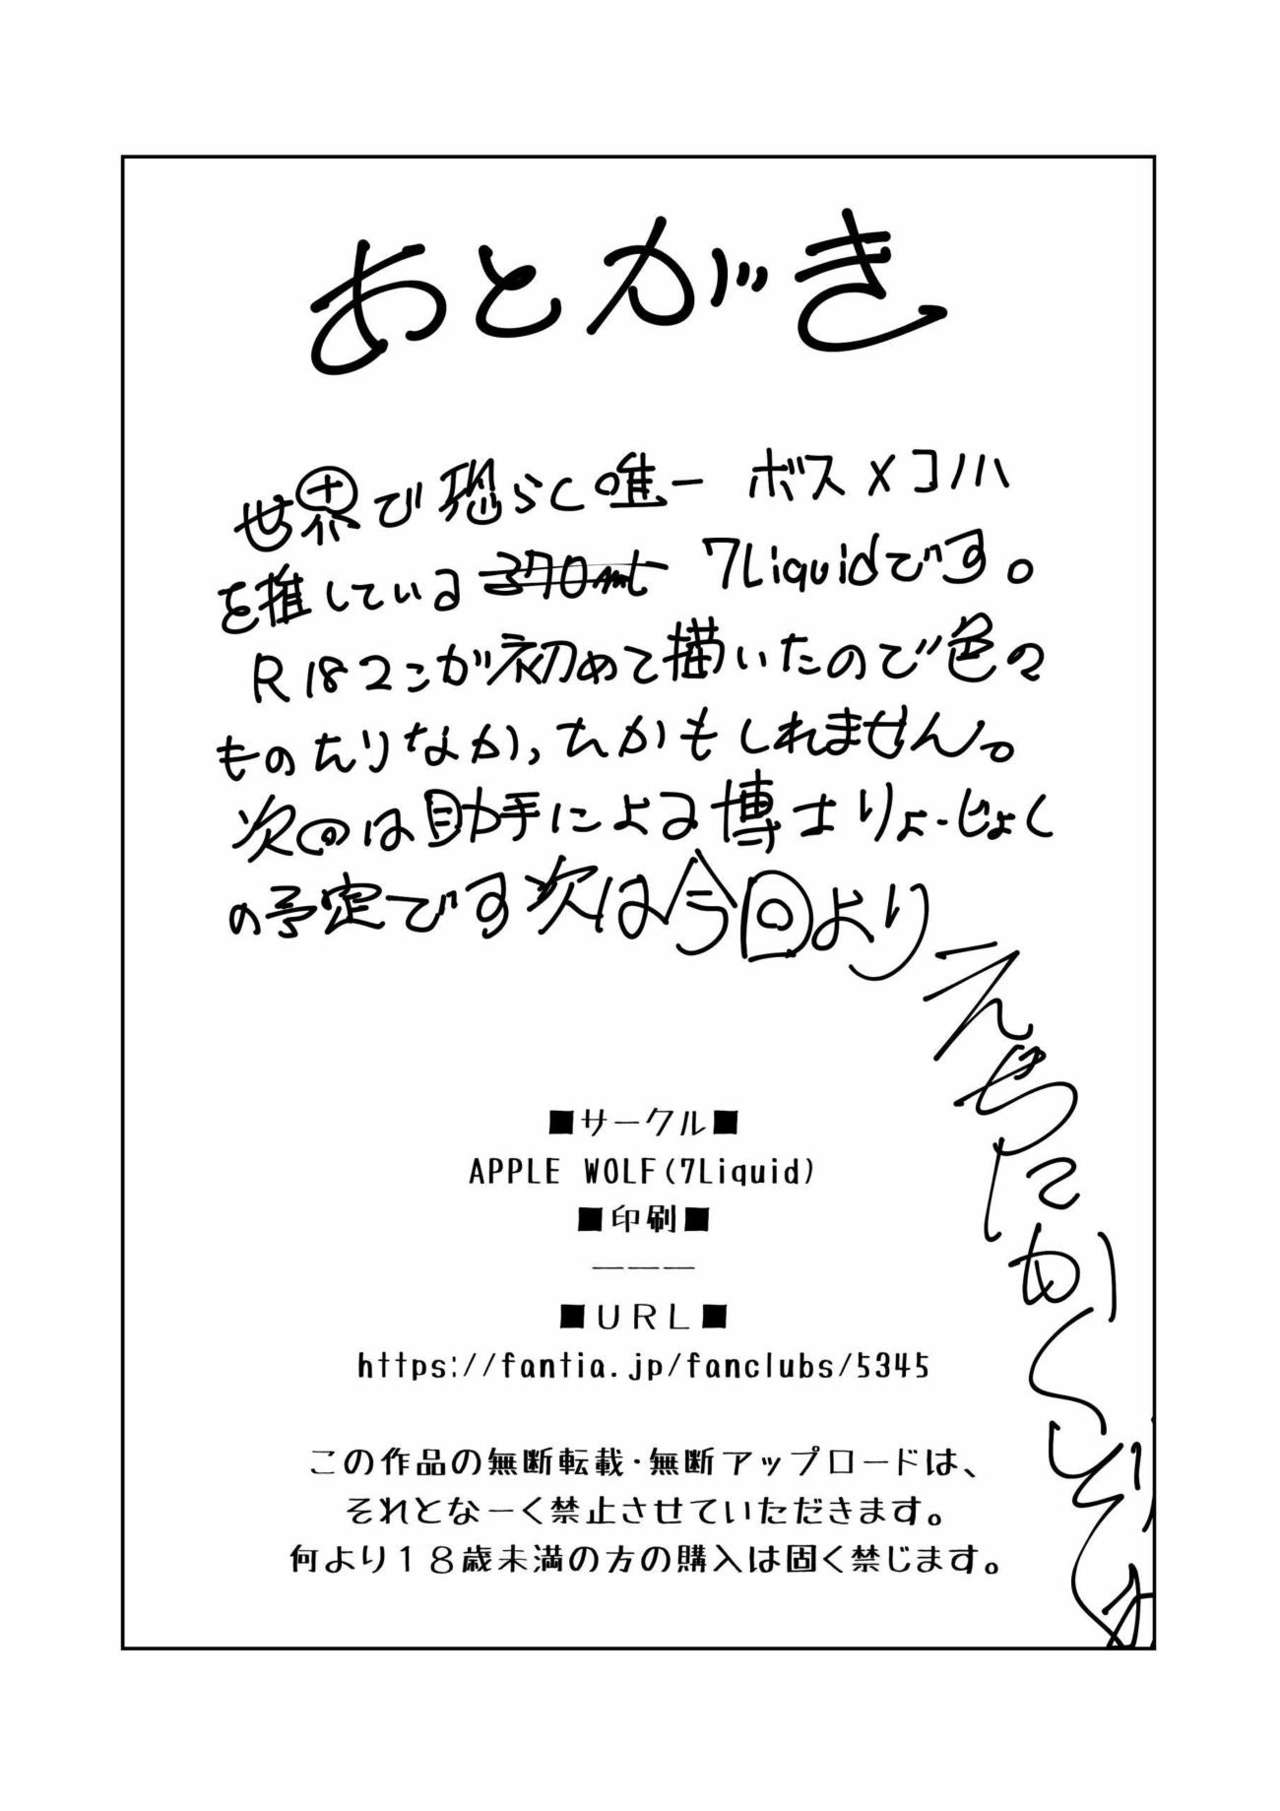 あとがき
世界で恐らく唯一 ボス×コノハ
を推している 370ml 7Liquidです。
R18マンガ初めて描いたので色々
ものたりなかったかもしれません。
次のは助手による博士りょーじょく
の予定です次は今回より
えちちに
■サークル■
APPLE WOLF(7Liquid)
■印刷■
ーーー
■URL■
https://fantia.jp/fanclubs/5345
この作品の無断転載・無断アップロードは、
それとなーく禁止させていただきます。
何より18歳未満の方の購入は固く禁じます。